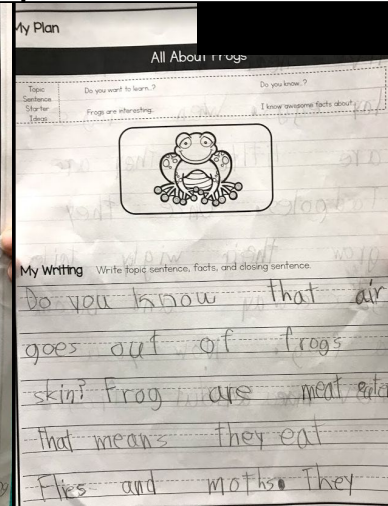 My Plan
All About Frogs
Topic Sentence Starter Ideas
Do you want to learn..?
Do you know..?
Frogs are interesting..
I know awesome facts about
My Writing Write topic sentence, facts, and closing sentence.
Do you know that air
goes out of frogs
skin? Frog are meat eater
that means they eat
Flies and moths. They